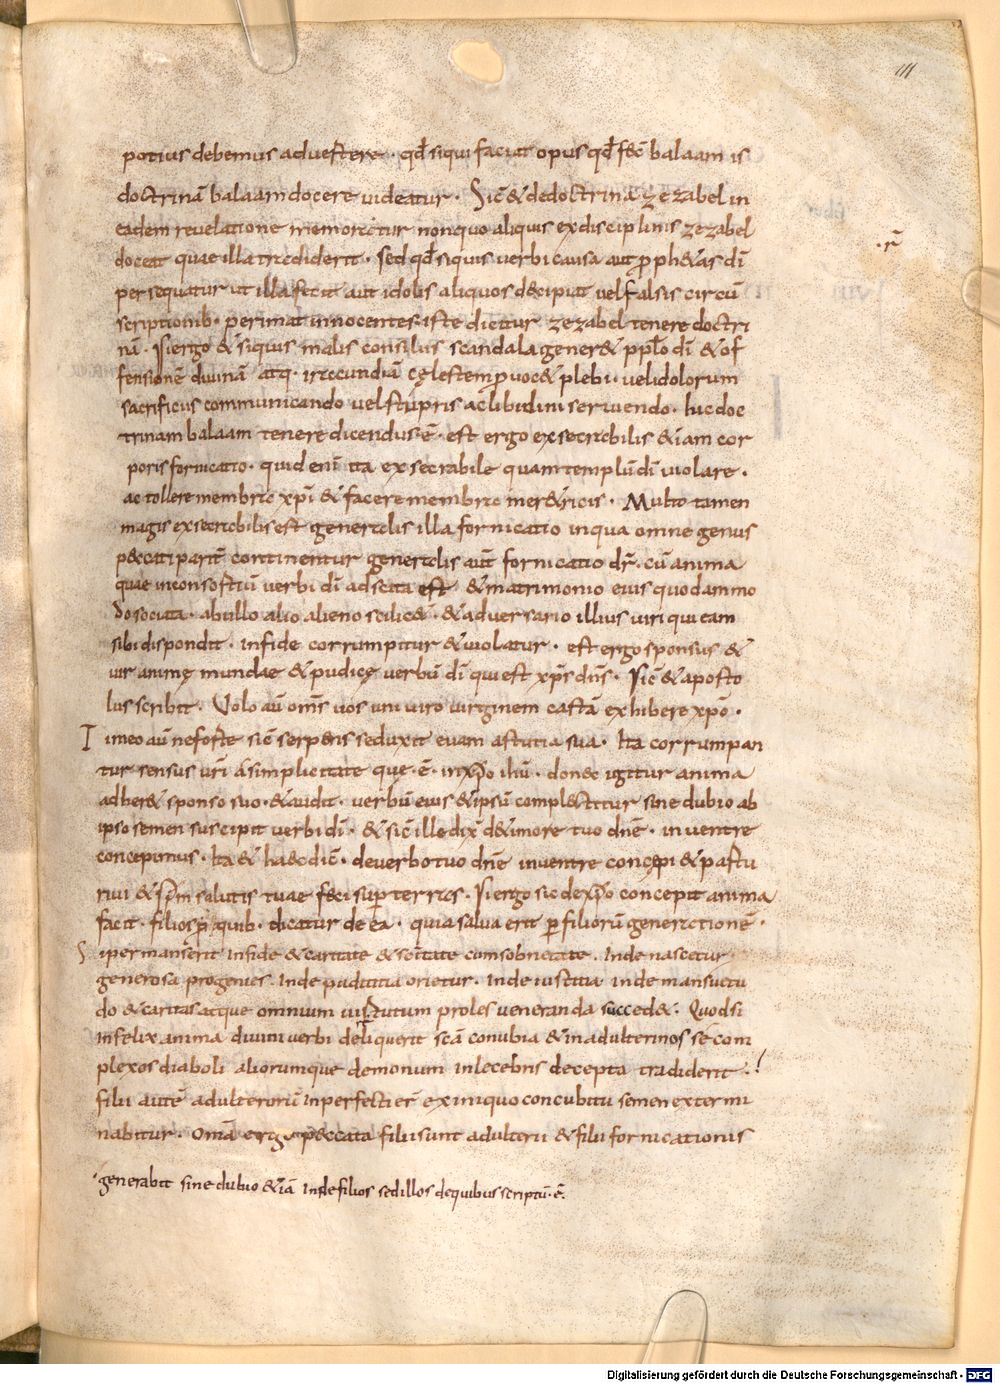 111
potius debemus advertere · qđ siqui faciat opus qđ fec̄ balaam is
doctrinā balaam docere videatur · Sic̄ & dedoctrina zezabel in
eadem revelatione memoratur nonquo aliquis exdisciplinis zezabel
·r̄
doceat quae illa tradiderit · sed qđ siquis verbi causa aut p̱ph&as dī
persequatur ut illa fecit aut idolis aliquos decipiat vel falsis circū
scriptionib· perimat innocentes iste dicitur zezabel tenere doctri
nā · Siergo & siquis malis consiliis scandala gener& pp̄lo dī & of
fensionē divinā atq· iracundiā cęlestem p̱voc& plebi · vel idolorum
sacrificiis communicando vel stupris ac libidini serviendo · hic doc
trinam balaam tenere dicendus · ē · est ergo exsecrabilis &iam cor
poris fornicatio · quid enī ita exsecrabile quam templū dī violare ·
ac tollere membra xp̄i & facere membra mer&ricis · Multo tamen
magis exsecrabilis est generalis illa fornicatio inqua omne genus
peccati parit̄ continentur generalis aut̄ fornicatio dr̄ · cū anima
quae inconsortiū verbi dī adscita est & matrimonio eius quodammo
do sociata · abullo alio alieno scilic& · & adversario illius viri qui eam
sibi dispondit · infide corrumpitur & violatur · est ergo sponsus &
vir animę mundae & pudicę verbū dī qui est xp̄s dn̄s · Sic̄ & aposto
lus scribit · Volo aū om̄s vos uni viro virginem castā exhibere xp̄o ·
Timeo aū neforte sic̄ serpens seduxit evam astutia sua · Ita corrumpan
tur sensus vr̄i a simplicitate que · ē · inxp̄o ih̄u · donec igitur anima
adher& sponso suo · & audit · verbū eius & ipsū complectitur sine dubio ab
ipso semen suscipit verbi dī · & sic̄ ille dix̄ d&imore tuo dn̄e · in ventre
concepimus · Ita & haec dic̄ · deverbo tuo dn̄e inventre concępi & partu
rivi & sp̄m salutis tuae feci super terras · Siergo sic dexp̄o concepit anima
facit · filios p̱ quib· dicatur de ea · quia salva erit p̱ filiorū generationē ·
Si permanserit infide & caritate & sc̄itate cum sobrietate · Inde nascetur
generosa progenies · Inde pudicitia orietur · Inde iustitia inde mansuetu
do & caritas atque omnium virtutum proles veneranda succed& · Quodsi
infelix anima divini verbi deliquerit sc̄a conubia & in adulterinos se com
plexos diaboli aliorumque demonum inlecebris decepta tradiderit · !
filii autē adulterorū inperfecti er̄ ex iniquo concubitu semen extermi
nabitur · Omīa ergo peccata filii sunt adulterii & filii fornicationis
·generabit sine dubio & iā inde filios sed illos dequibus scriptū · ē ·
Digitalisierung gefördert durch die Deutsche Forschungsgemeinschaft - DFG